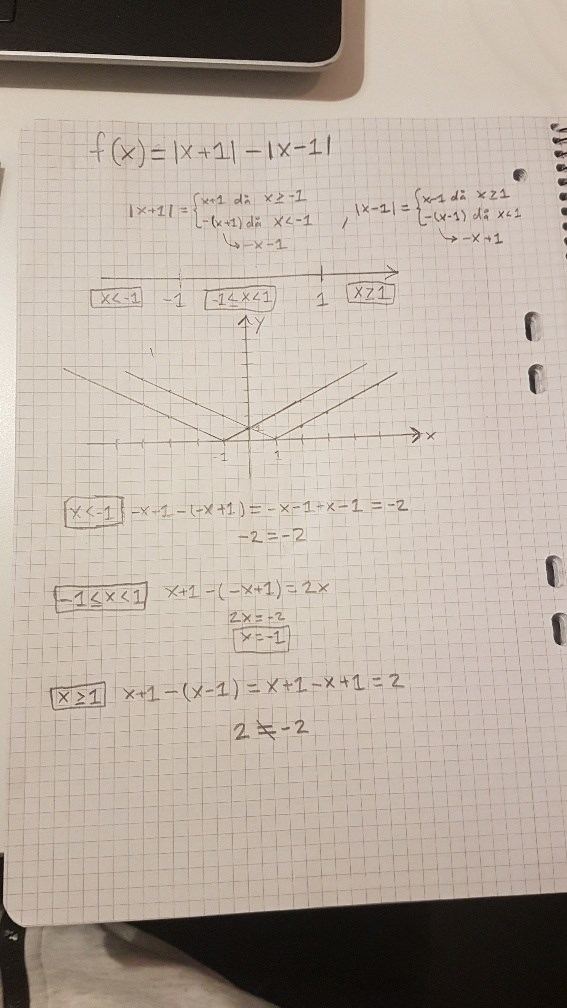 f(x) = |x+1| - |x-1|
|x+1| = { x+1 då x ≥ -1 , |x-1| = { x-1 då x ≥ 1
-(x+1) då x < -1 -(x-1) då x < 1
↳ -x-1 ↳ -x+1
x < -1 -1 -1 ≤ x < 1 1 x ≥ 1
y
x
-1 1
x < -1 -x-1-(-x+1) = -x-1+x-1 = -2
-2 = -2
-1 ≤ x < 1 x+1-(-x+1) = 2x
2x = -2
x = -1
x ≥ 1 x+1-(x-1) = x+1-x+1 = 2
2 ≠ -2